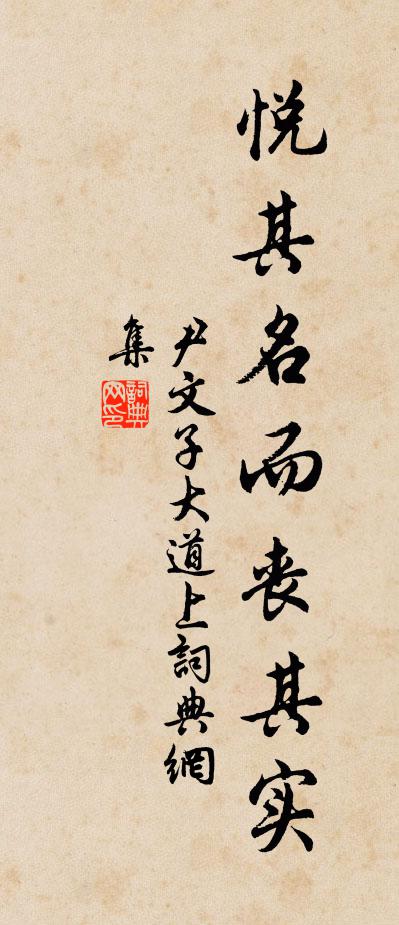 悦其名而丧其实
尹文子大道上詞典網
集
詞典
网印